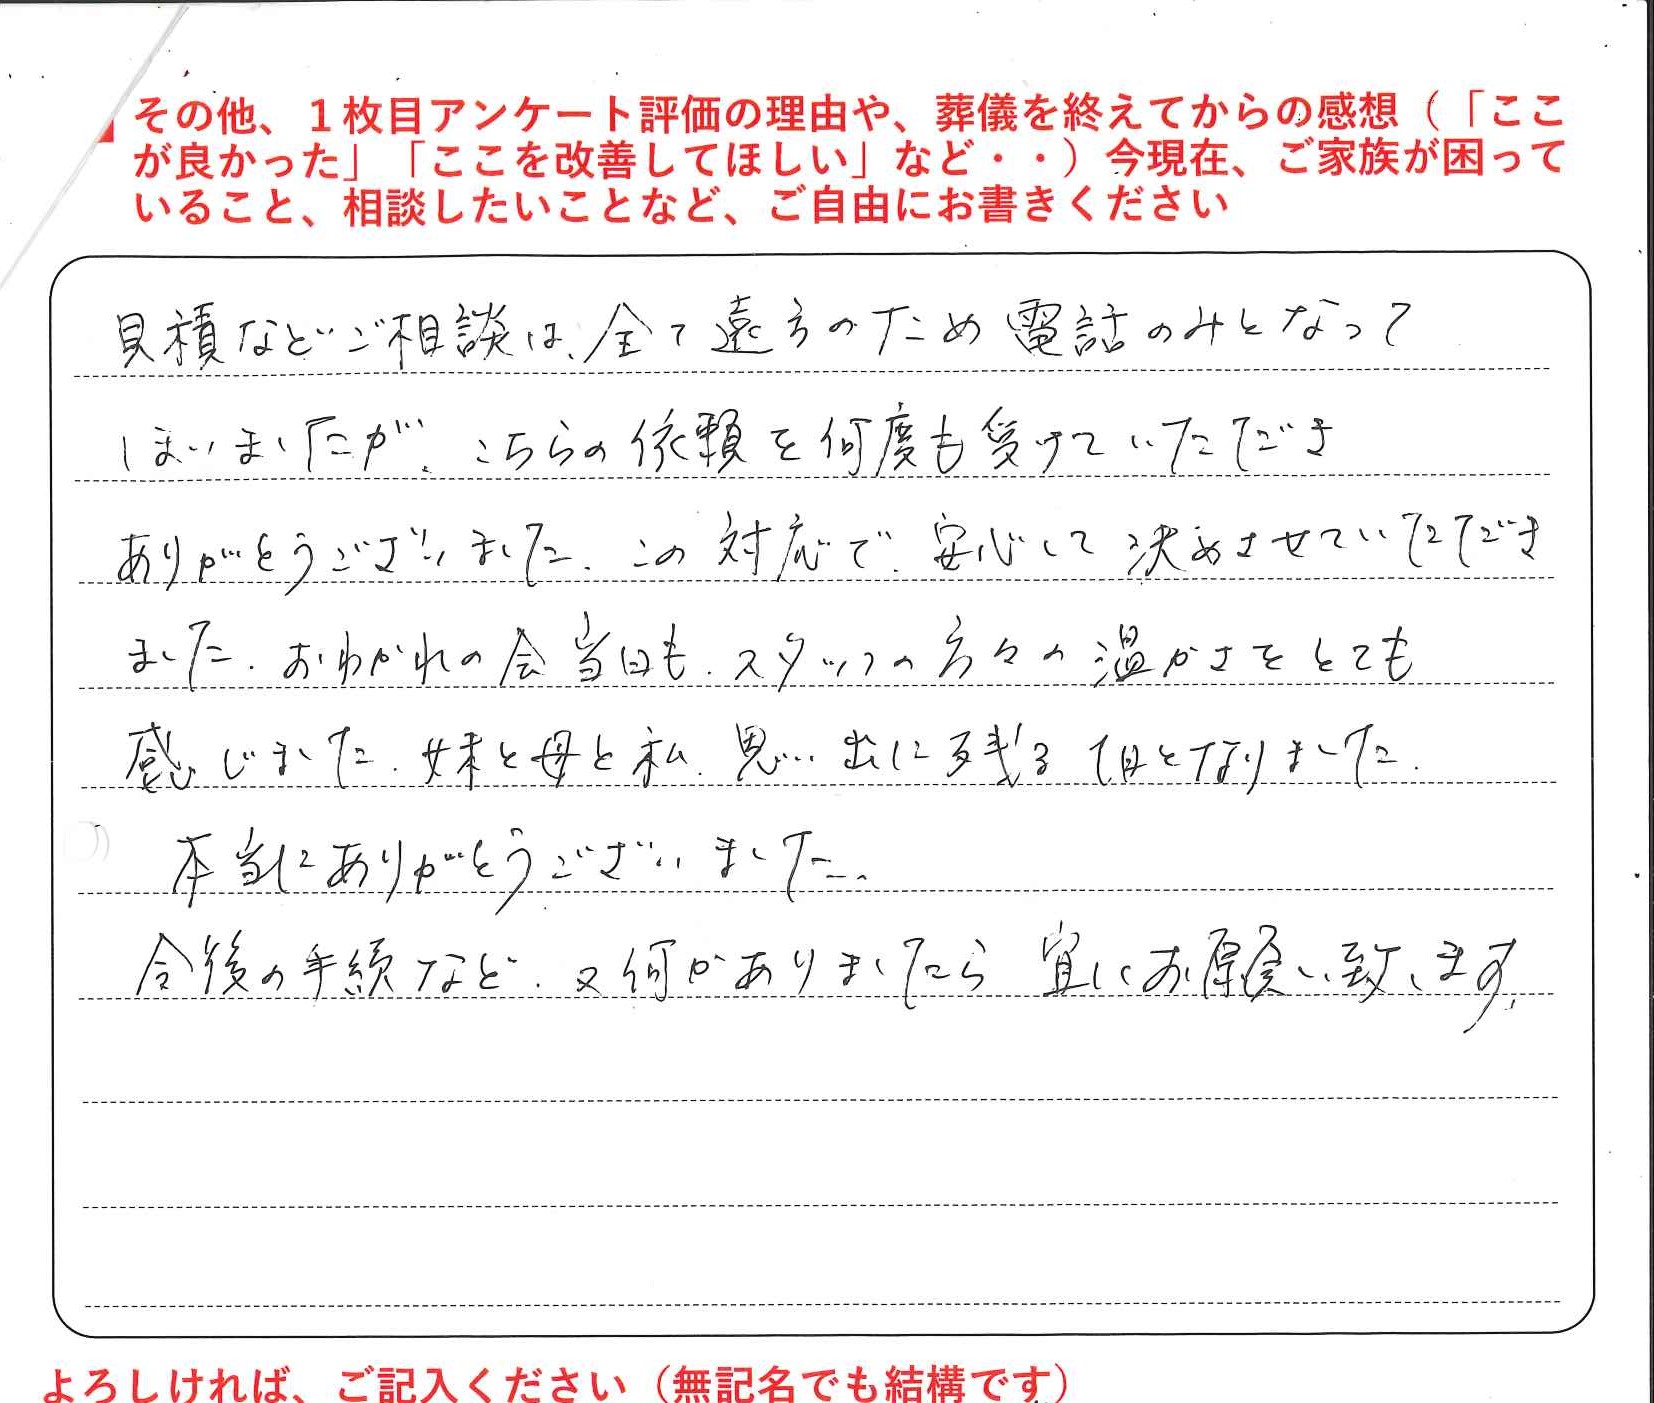 その他、１枚目アンケート評価の理由や、葬儀を終えてからの感想（「ここ
が良かった」「ここを改善してほしい」など・・）今現在、ご家族が困って
いること、相談したいことなど、ご自由にお書きください
見積などご相談は、全て遠方のため電話のみとなって
しまいましたが、こちらの依頼を何度も受けていただき
ありがとうございました。この対応で、安心して決めさせていただき
ました。おわかれの会当日も、スタッフの方々の温かさをとても
感じました。妹と母と私、思い出に残る1日となりました。
本当にありがとうございました。
今後の手続など、又何かありましたら宜しくお願い致します。
よろしければ、ご記入ください（無記名でも結構です）